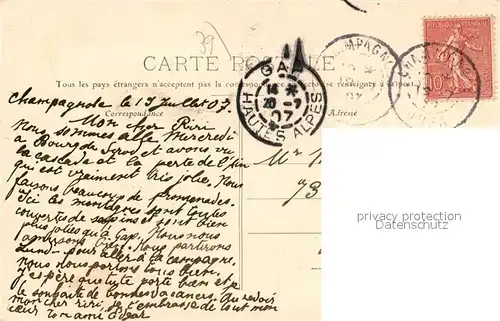 39
CARTE POSTALE
Tous les pays étrangers n'acceptent pas la correspondance
se renseigner à la
Correspondance
Adresse
CHAMPAGNOLE
10
GAP
18
20 -7
07
HAUTES ALPES
Champagnole le 19 Juillet 07
Mon cher Riri
Nous sommes allé Mercredi
à Bourg de Sirod et avons vu
la cascade et la perte de l'Ain
qui est vraiment très jolie. Nous
faisons beaucoup de promenades.
Ici les montagnes sont toutes
couvertes de sapins et sont bien
plus jolies qu'à Gap. Nous nous
amusons bien. Nous partirons
Lundi pour aller à la campagne.
Nous nous portons tous bien.
J'espère que tu te porte bien et
te souhaite de bonnes vacances. Au revoir
mon cher riri, je t'embrasse de tout mon
cœur ton ami
Mr
73
privacy protection
Datenschutz